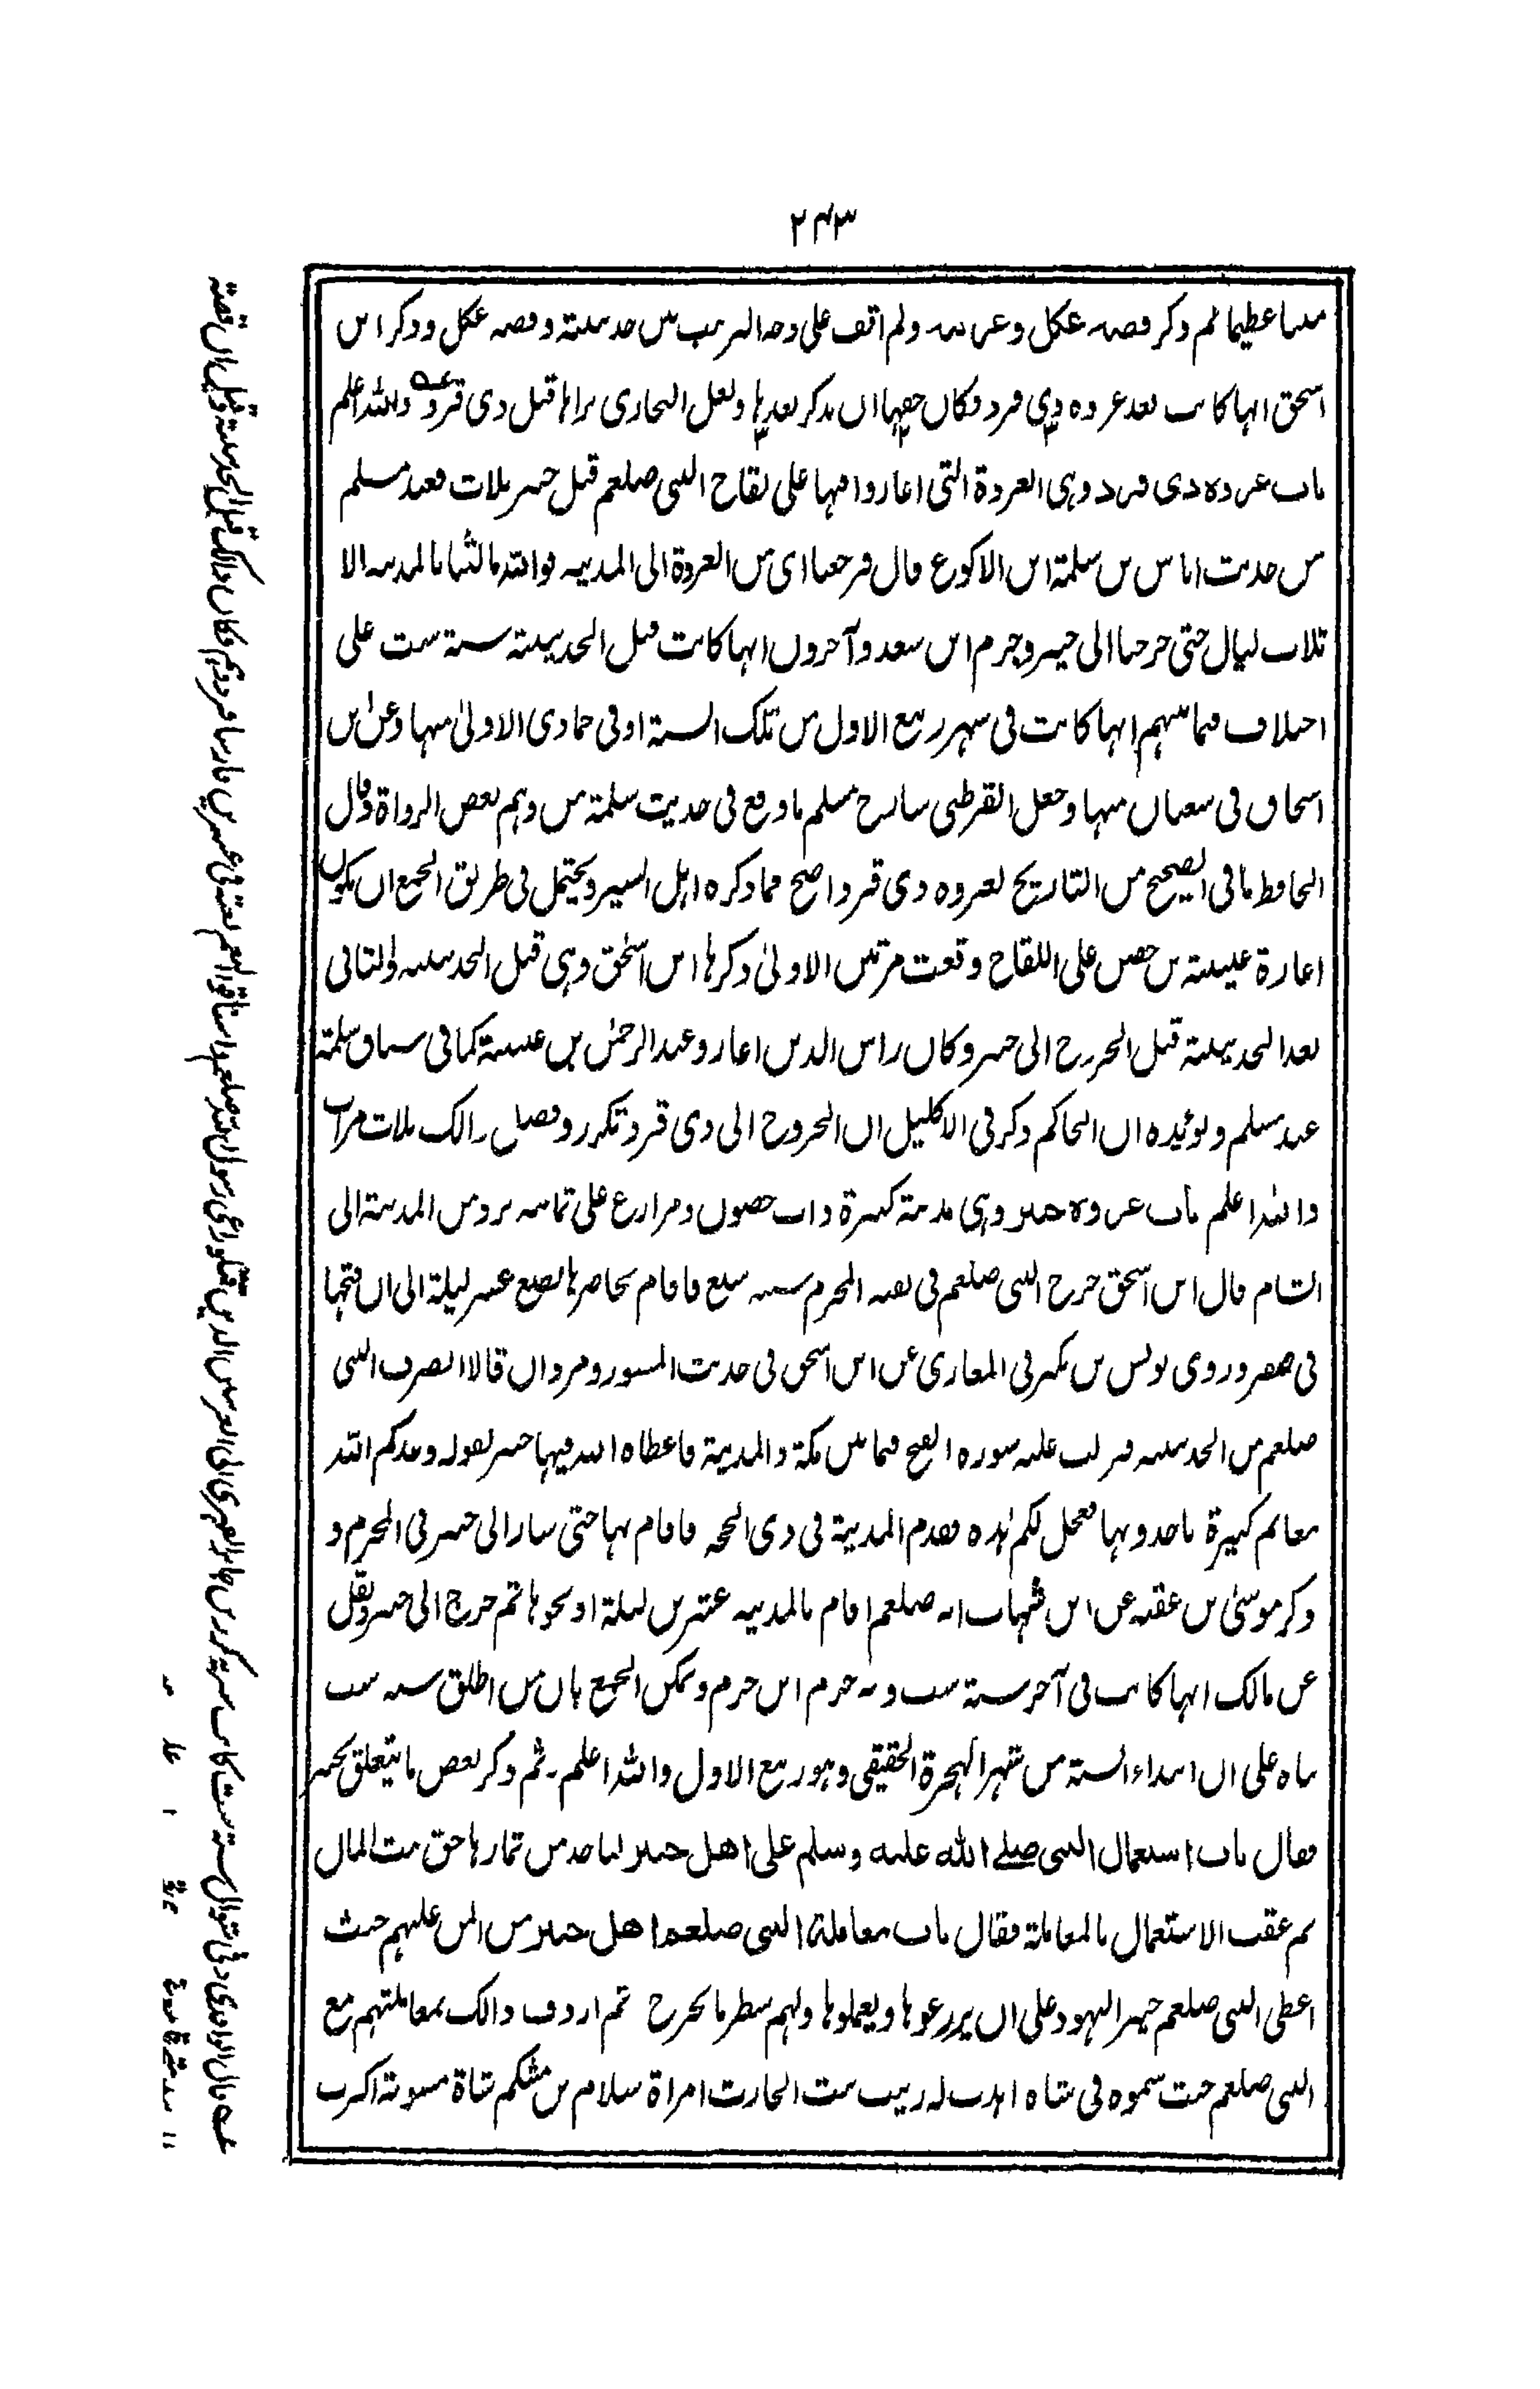 ٢٤٣
مبينا عظيما ثم ذكر قصه عكل وعرينه ولم اقف على وجه الترتيب بين حديبيته وقصه عكل وذكر ابن
اسحق انها كانت بعد غزوه ذي قرد فكان حقها ان يذكر بعدها ولعل البخاري يراها قبل ذي قرد والله اعلم
باب غزوه ذي قرد وهي الغزوة التي اغاروا فيها على لقاح النبي صلعم قبل خيبر بثلاث فعند مسلم
من حديث اياس بن سلمة ابن الاكوع قال فرجعنا اي من الغزوة الى المدينه فوالله ما لبثنا بالمدينه الا
ثلاث ليال حتى خرجنا الى خيبر وجزم ابن سعد وآخرون انها كانت قبل الحديبية سنة ست على
اختلاف فيما بينهم انها كانت في شهر ربيع الاول من تلك السنة او في جمادى الاولى منها وعن ابن
اسحاق في شعبان منها وجعل القرطبي شارح مسلم ما وقع في حديث سلمة من وهم بعض الرواة وقال
الحافظ ما في الصحيح من التاريخ لغزوه ذي قرد اصح مما ذكره اهل السير ويحتمل في طريق الجمع ان يكون
اغارة عيينة بن حصن على اللقاح وقعت مرتين الاولى ذكرها ابن اسحق وهي قبل الحديبيه والثاني
بعد الحديبية قبل الخروج الى خيبر وكان راس الذين اغاروا عبد الرحمن بن عيينة كما في سياق سلمة
عند مسلم ويؤيده ان الحاكم ذكر في الاكليل ان الخروج الى ذي قرد تكرر وفصل ذالك ثلاث مرات
والله اعلم باب غزوه خيبر وهي مدينة كبيرة ذات حصون ومزارع على ثمانيه برد من المدينة الى
الشام قال ابن اسحق خرج النبي صلعم في بقيه المحرم سنه سبع فاقام يحاصرها بضع عشر ليلة الى ان فتحها
في صفر وروى يونس بن بكير في المغازي عن ابن اسحق في حديث المسور ومروان قالا انصرف النبي
صلعم من الحديبيه فنزلت عليه سوره الفتح فيما بين مكة والمدينة فاعطاه الله فيها خيبر بقوله وعدكم الله
مغانم كثيرة تاخذونها فعجل لكم هذه فقدم المدينة في ذي الحجه فاقام بها حتى سار الى خيبر في المحرم و
ذكر موسى بن عقبه عن ابن شهاب انه صلعم اقام بالمدينه عشرين ليلة او نحوها ثم خرج الى خيبر ونقل
عن مالك انها كانت في آخر سنة ست وبه جزم ابن حزم ويمكن الجمع بان من اطلق سنه ست
بناه على ان ابتداء السنة من شهر الهجرة الحقيقي وهو ربيع الاول والله اعلم۔ ثم ذكر بعض ما يتعلق بخيبر
فقال باب استعمال النبي صلے الله عليه وسلم على اهل خيبر لياخذ من ثمارها حق بيت المال
ثم عقب الاستعمال بالمعاملة فقال باب معاملة النبي صلعم اهل خيبر من المن عليهم حيث
اعطى النبي صلعم خيبر اليهود على ان يزرعوها ويعملوها ولهم شطر ما يخرج ثم اردف ذالك بمعاملتهم مع
النبي صلعم حيث سموه في شاه اهدت له زينب بنت الحارث امراة سلام بن مشكم شاة مسمومة اكثرت